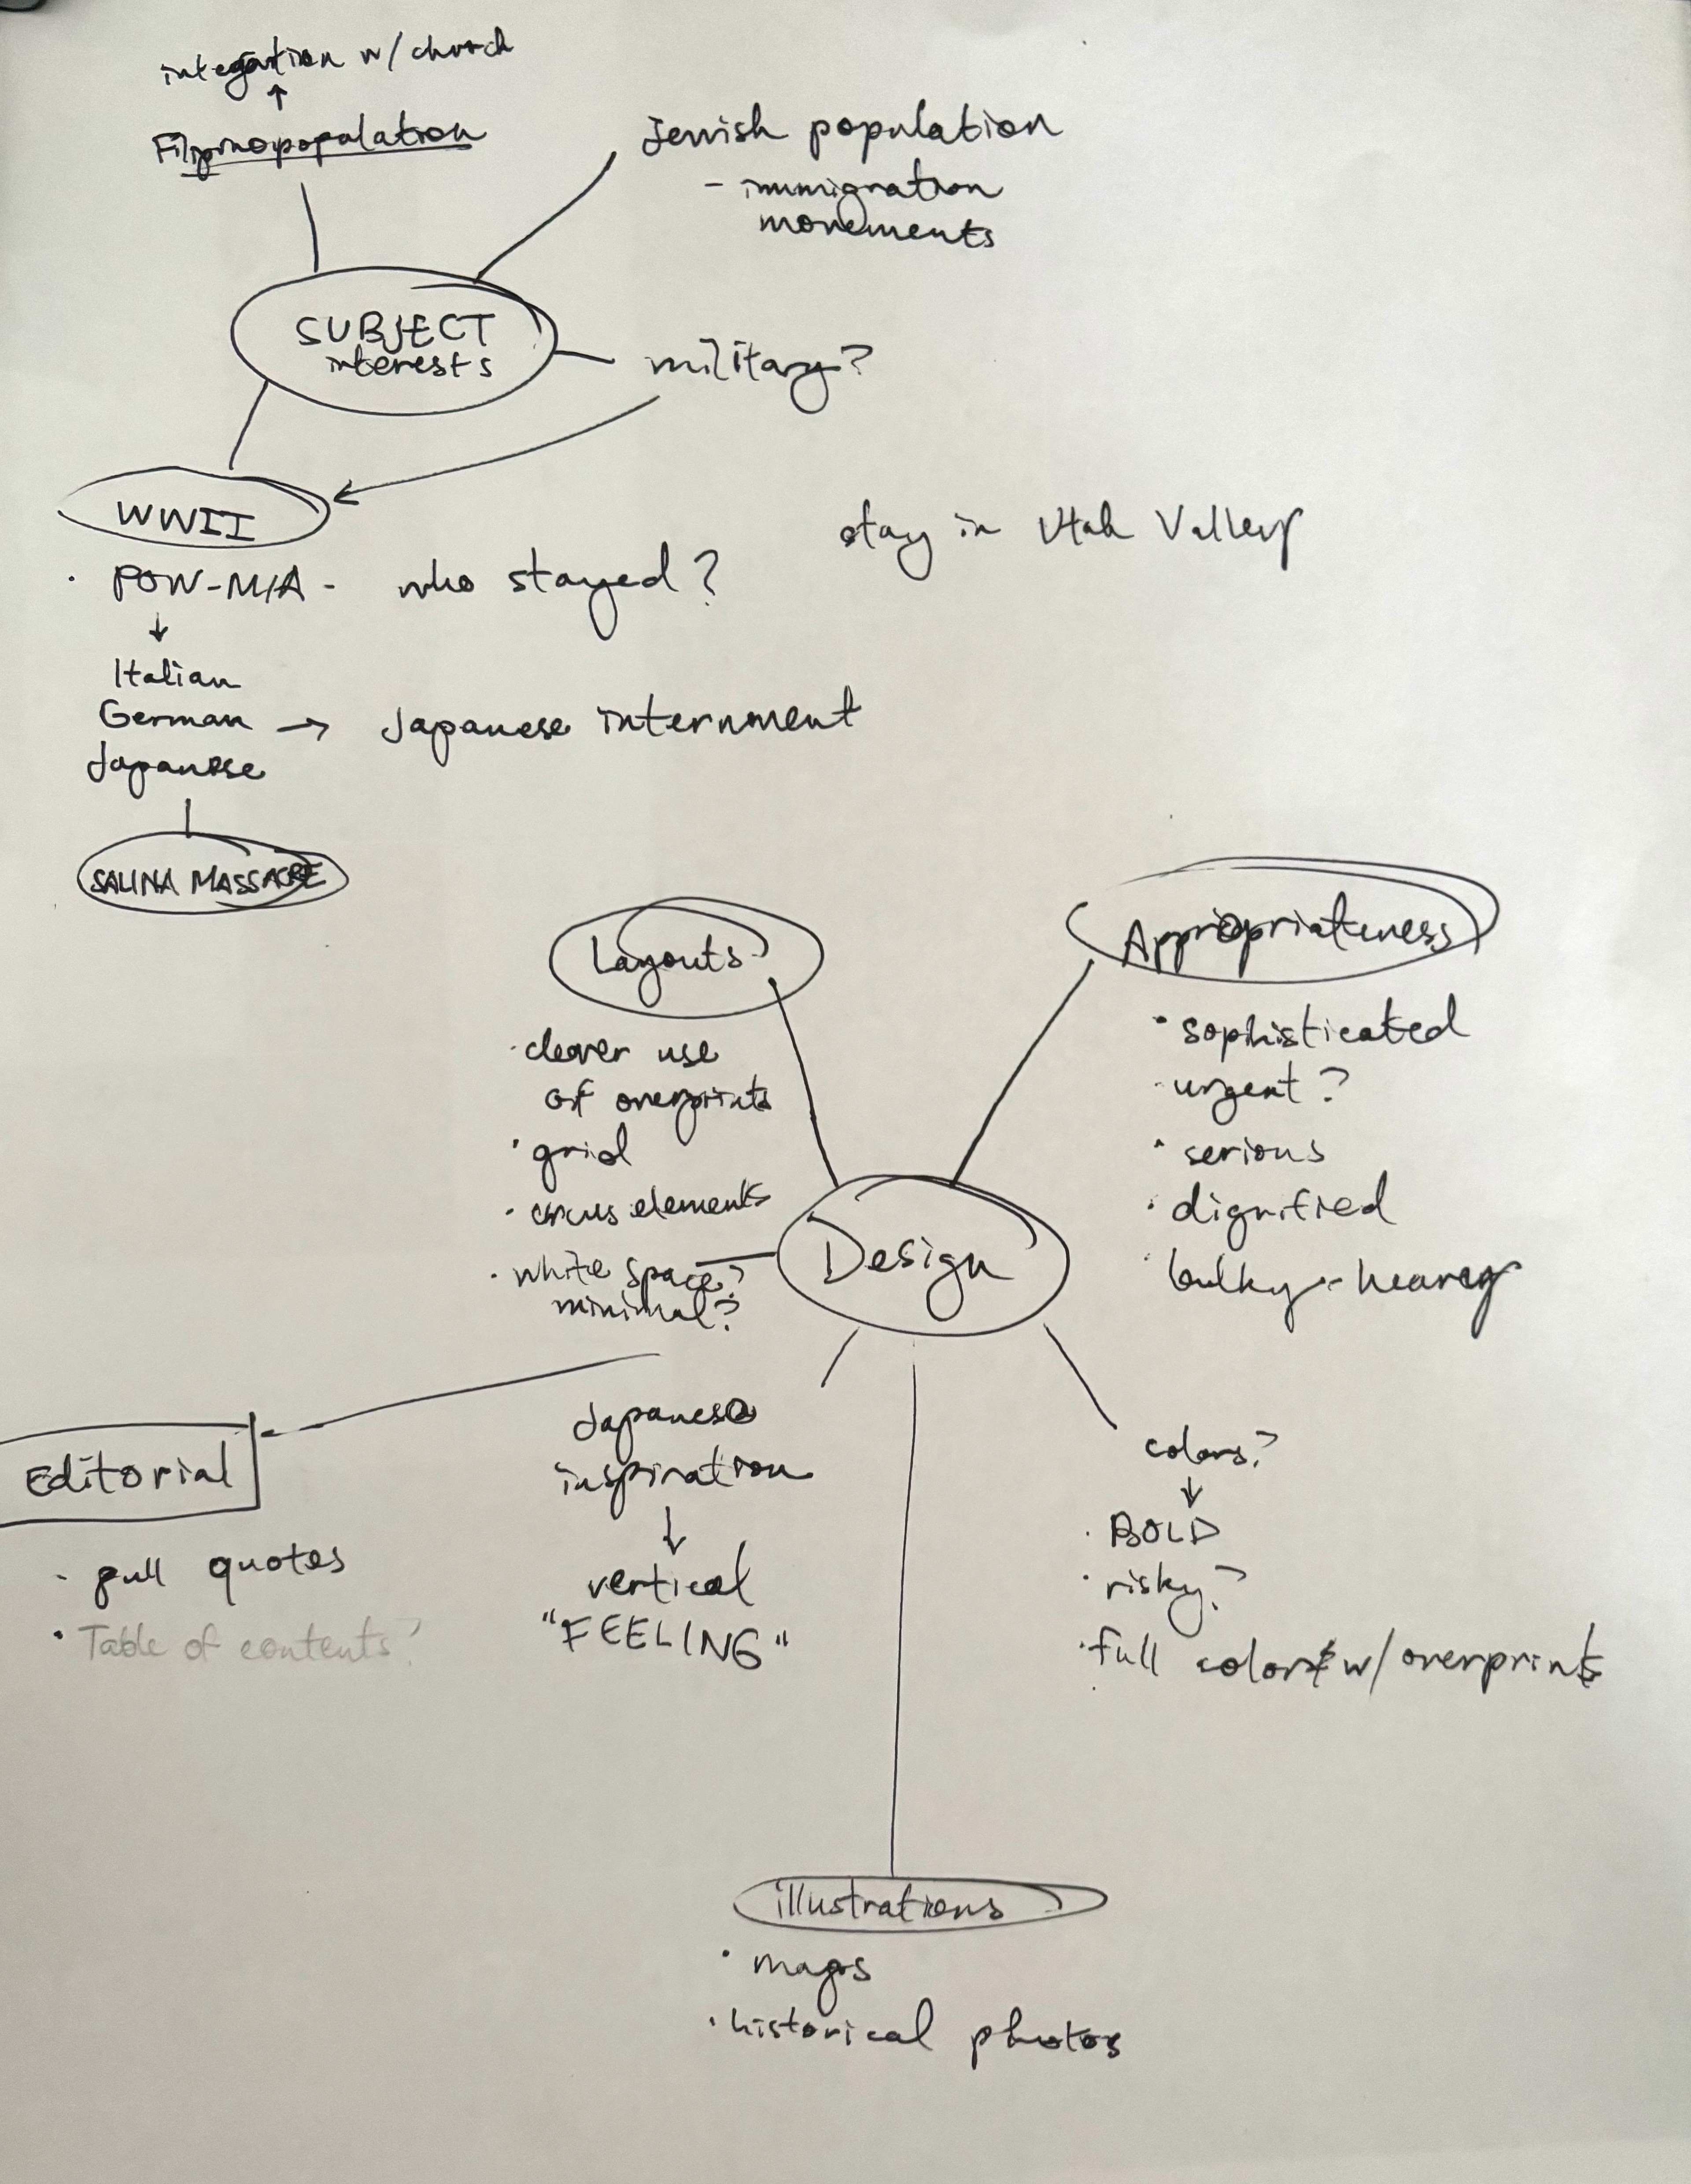 integration w/ church
↑
Filipino population
Jewish population
- immigration
movements
SUBJECT
interests
military?
WWII
stay in Utah Valley
· POW-MIA - who stayed?
↓
Italian
German → Japanese internment
Japanese
SALINA MASSACRE
Layouts
· clever use
of overprints
· grid
· circus elements
· white space?
minimal?
Appropriateness
· sophisticated
· urgent?
· serious
· dignified
· bulky - heavy
Design
Editorial
- pull quotes
· Table of contents?
Japanese
inspiration
↓
vertical
"FEELING"
colors?
↓
· BOLD
· risky?
· full color w/ overprints
illustrations
· maps
· historical photos